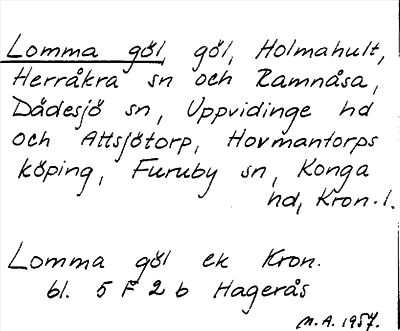 Lomma göl, göl, Holmahult,
Herråkra sn och Ramnåsa,
Dådesjö sn, Uppvidinge hd
och Attsjötorp, Hovmantorps
köping, Furuby sn, Konga
hd, Kron. l.
Lomma göl ek Kron.
bl. 5 F 2 b Hagerås
M.A. 1957.